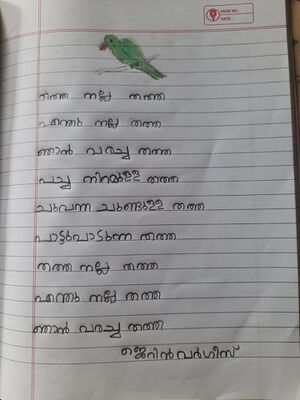 PAGE NO.
DATE:
തത്ത നല്ല തത്ത
എന്തു നല്ല തത്ത
ഞാൻ വരച്ച തത്ത
പച്ച നിറമുള്ള തത്ത
ചുവന്ന ചുണ്ടുള്ള തത്ത
പാട്ടുപാടുന്ന തത്ത
തത്ത നല്ല തത്ത
എന്തു നല്ല തത്ത
ഞാൻ വരച്ച തത്ത
ജെറിൻ വർഗീസ്